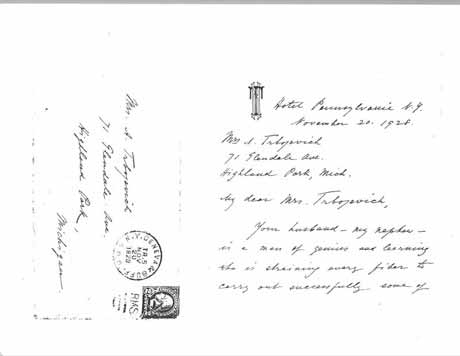 Mrs. N. Trbojevich
71 Glendale Ave.
Highland Park,
Michigan.
GENEVA & BUFF.
1928
R.M.S.
Hotel Pennsylvania N.Y.
November 20. 1928.
Mrs N. Trbojevich
71 Glendale Ave.
Highland Park, Mich.
My dear Mrs. Trbojevich,
Your husband – my nephew –
is a man of genius and learning
who is straining every fiber to
carry out successfully some of